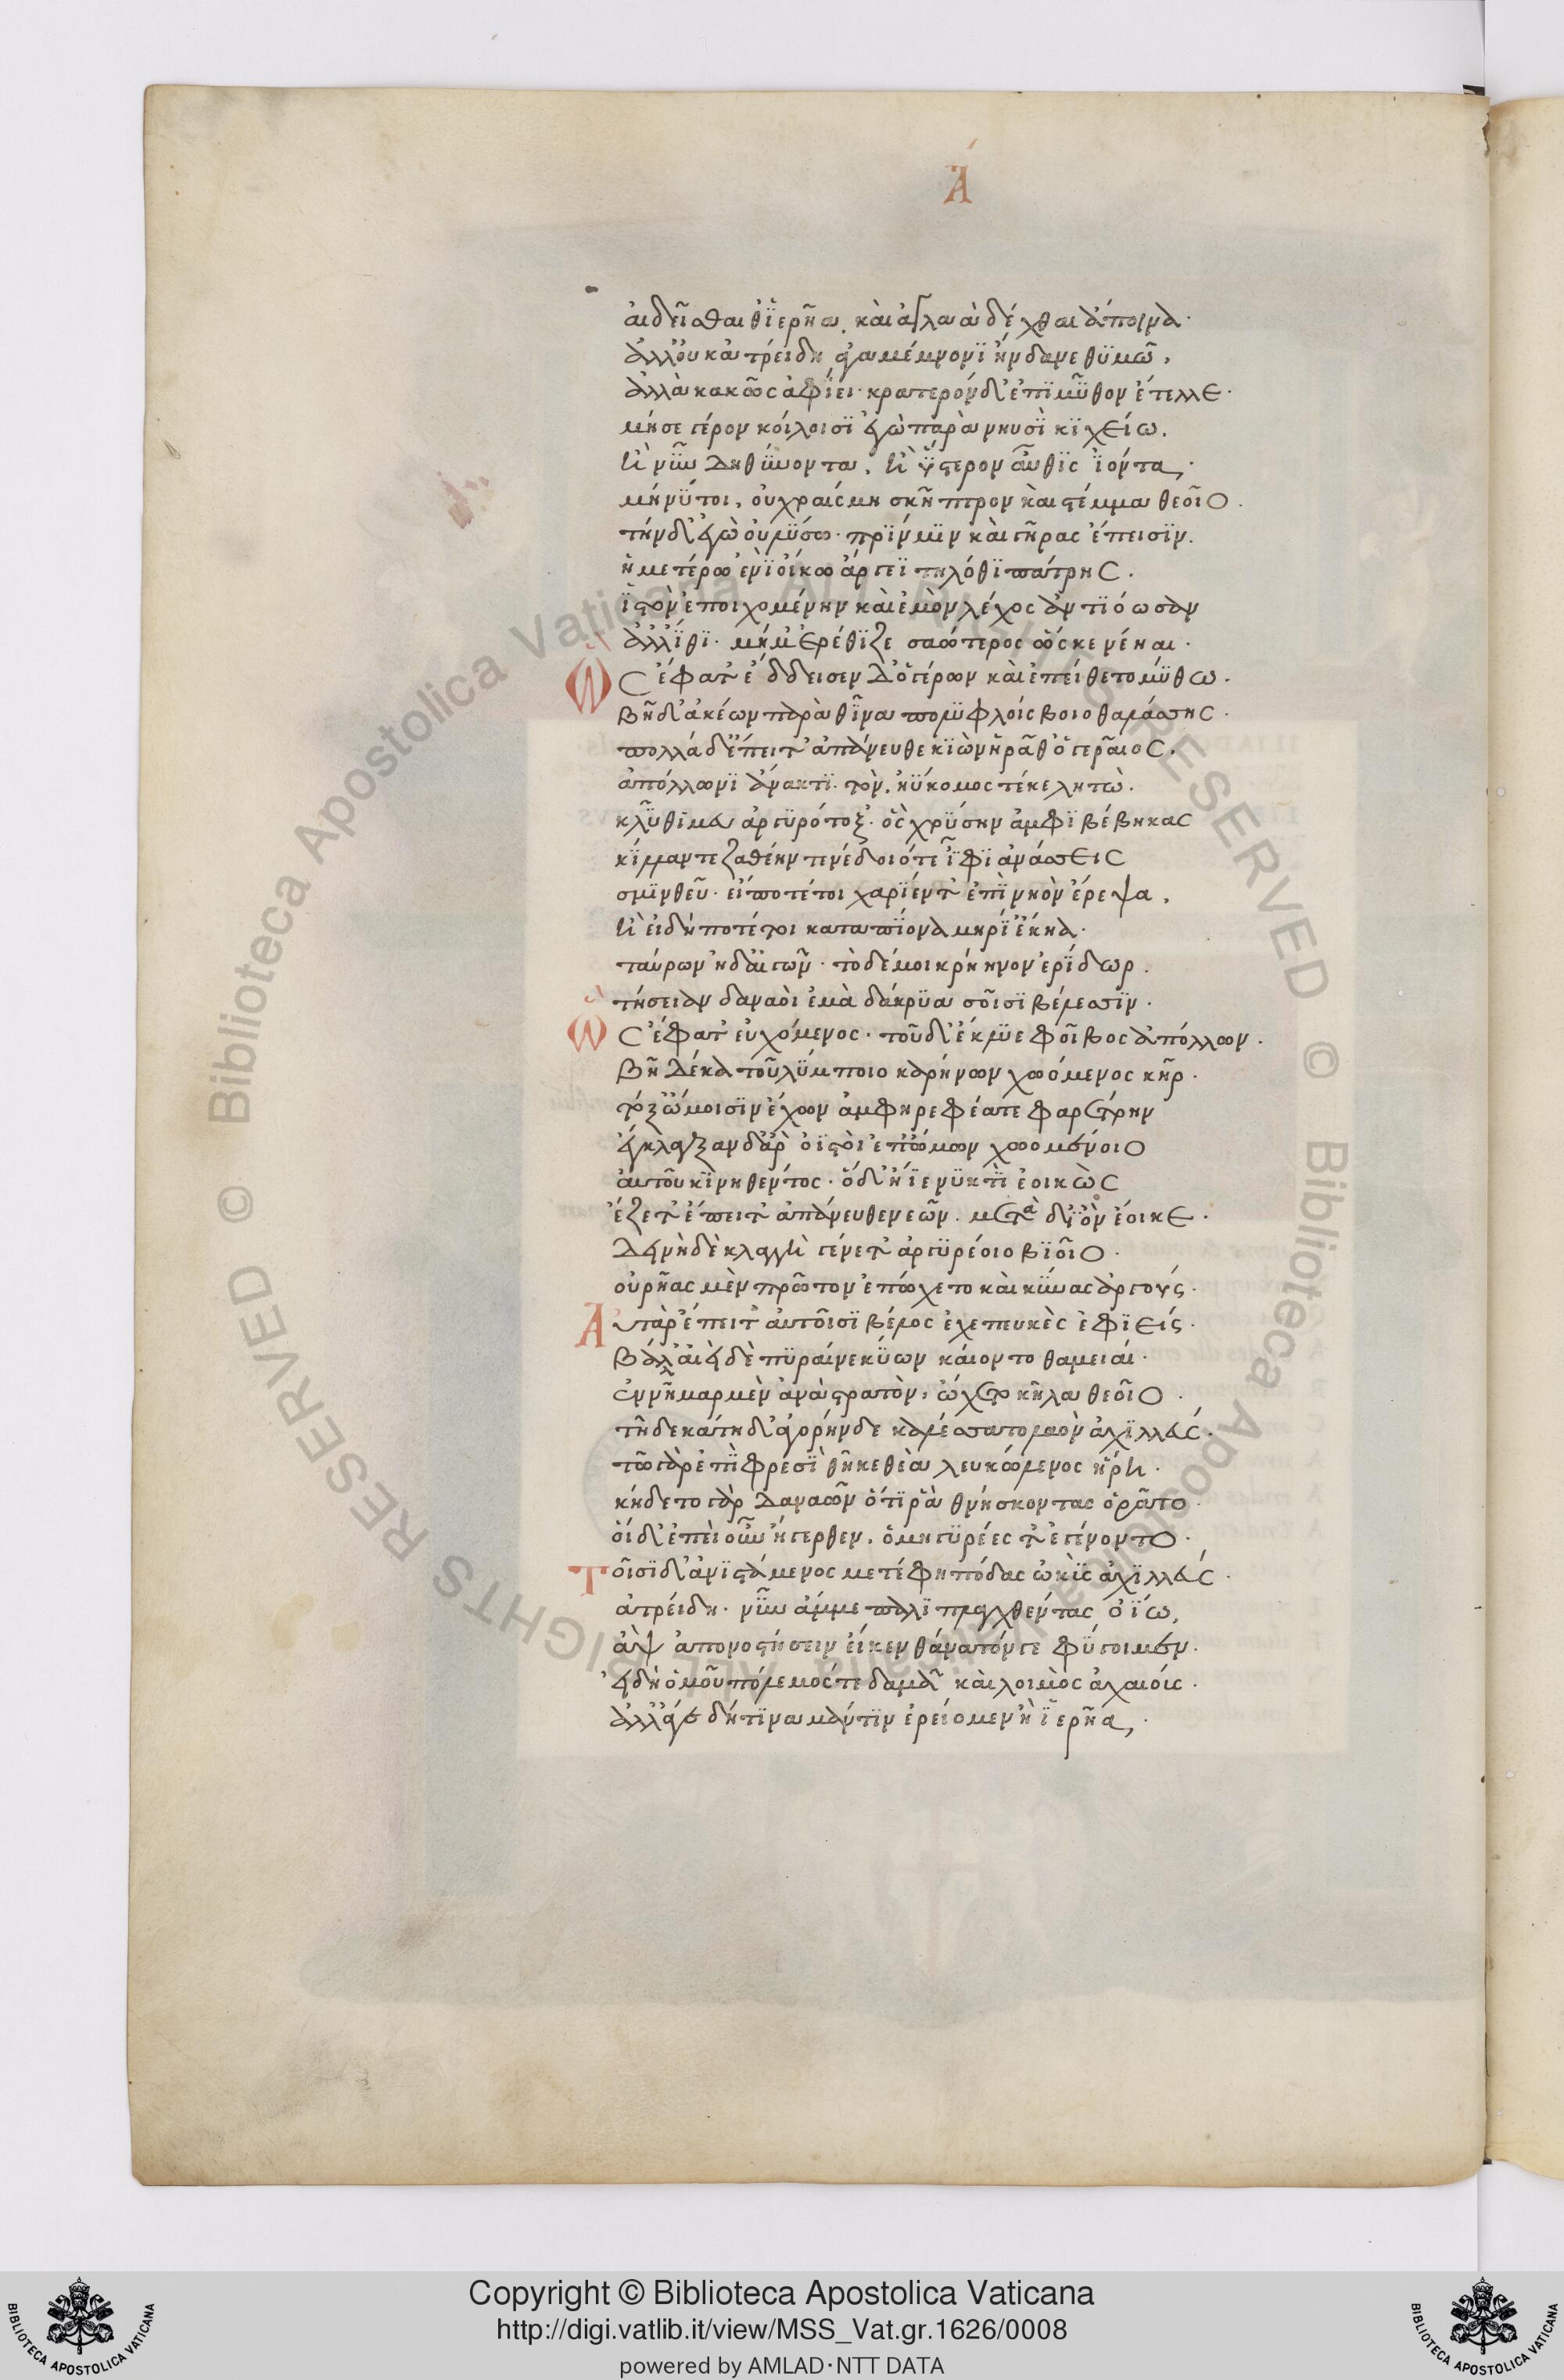 Ἀ
αἰδεῖσθαι θ' ἱερῆα, καὶ ἀγλαὰ δέχθαι ἄποινα·
ἀλλ' οὐκ ἀτρείδη ἀγαμέμνονϊ ἥνδανε θϋμῶ,
ἀλλὰ κακῶς ἀφΐει· κρατερὸν δ' ἐπὶ μῦθον ἔτελλε·
μή σε γέρον κοίλοισϊ ἐγὼ παρὰ νηυσῒ κϊχείω.
ἢ νῦν δηθύνοντα, ἢ ὕστερον αὖθϊς ἰόντα,·
μή νϋ τοι, οὐ χραίσμη σκῆπτρον καὶ στέμμα θεοῖο.
τὴν δ' ἐγὼ οὐ λϋσω· πρΐν μϊν καὶ γῆρας ἔπεισϊν.
ἡμετέρω ἐνῒ οἴκω ἄργεϊ τηλόθϊ πάτρης.
ἱστὸν ἐποιχομένην καὶ ἐμὸν λέχος ἀντϊόωσαν
ἀλλ' ἴθϊ· μή μ' ἐρέθϊζε σαώτερος ὥς κε νέηαι·
Ὣς ἔφατ' ἔδδεισεν δ' ὁ γέρων καὶ ἐπείθετο μύθω·
βῆ δ' ἀκέων παρὰ θῖνα πολϋφλοίσβοιο θαλάσσης·
πολλὰ δ' ἔπειτ' ἀπάνευθε κϊὼν ἠρᾶθ' ὁ γεραιός,
ἀπόλλωνϊ ἄνακτϊ. τὸν, ἠΰκομος τέκε λητώ.
κλῦθϊ μευ ἀργϋρότοξ'· ὃς χρύσην ἀμφϊβέβηκας
κϊλλαν τε ζαθέην τενέδοιό τε ἶφϊ ἀνάσσεις
σμϊνθεῦ· εἴ ποτέ τοι χαρΐεντ' ἐπῒ νηὸν ἔρεψα,
ἢ εἰ δή ποτέ τοι κατα πΐονα μηρΐ' ἔκηα·
ταύρων ἠδ' αἰγῶν· τὸ δέ μοι κρήηνον ἐέλδωρ.
τήσειαν δαναοὶ ἐμὰ δάκρϋα σοῖσϊ βέλεσσϊν·
Ὣς ἔφατ' εὐχόμενος· τοῦ δ' ἔκλϋε φοῖβος ἀπόλλων.
βῆ δὲ κατ' οὐλύμποιο καρήνων χωόμενος κῆρ·
τόξ' ὤμοισϊν ἔχων ἀμφηρεφέα τε φαρέτρην
ἔκλαγξαν δ' ἄρ' ὀϊστοὶ ἐπ' ὤμων χωομένοιο
αὐτοῦ κϊνηθέντος· ὁ δ' ἤϊε νϋκτῒ ἐοικὼς
ἕζετ' ἔπειτ' ἀπάνευθε νεῶν. μετὰ δ' ἰὸν ἕηκε·
δεινὴ δὲ κλαγγὴ γένετ' ἀργϋρέοιο βϊοῖο·
οὐρῆας μὲν πρῶτον ἐπώχετο καὶ κύνας ἀργούς·
Αὐτὰρ ἔπειτ' αὐτοῖσϊ βέλος ἐχεπευκὲς ἐφϊείς·
βάλλ' αἰεὶ δὲ πϋραὶ νεκύων καίοντο θαμειαί·
ἐννῆμαρ μὲν ἀνὰ στρατὸν, ὤχετο κῆλα θεοῖο·
τῆ δεκάτη δ' ἀγορήνδε καλέσσατο λαὸν ἀχϊλλεύς·
τῶ γὰρ ἐπῒ φρεσῒ θῆκε θεὰ λευκώλενος ἥρη·
κήδετο γὰρ δαναῶν ὅτϊ ῥὰ θνήσκοντας ὁρᾶτο·
οἱ δ' ἐπεὶ οὖν ἤγερθεν, ὁμηγϋρέες τ' ἐγένοντο·
Τοῖσϊ δ' ἀνϊστάμενος μετέφη πόδας ὠκὺς ἀχϊλλεύς·
ἀτρείδη· νῦν ἄμμε παλϊπλαγχθέντας ὀΐω,
ἂψ ἀπονοστήσειν εἴ κεν θάνατόν γε φύγοιμεν·
εἰ δὴ ὁμοῦ πόλεμός τε δαμᾶ καὶ λοιμὸς ἀχαιούς·
ἀλλ' ἄγε δή τϊνα μάντϊν ἐρείομεν ἢ ἱερῆα,·
© Biblioteca Apostolica Vaticana ALL RIGHTS RESERVED
© Biblioteca Apostolica Vaticana ALL RIGHTS RESERVED
Copyright © Biblioteca Apostolica Vaticana
http://digi.vatlib.it/view/MSS_Vat.gr.1626/0008
powered by AMLAD·NTT DATA
BIBLIOTECA APOSTOLICA VATICANA
BIBLIOTECA APOSTOLICA VATICANA